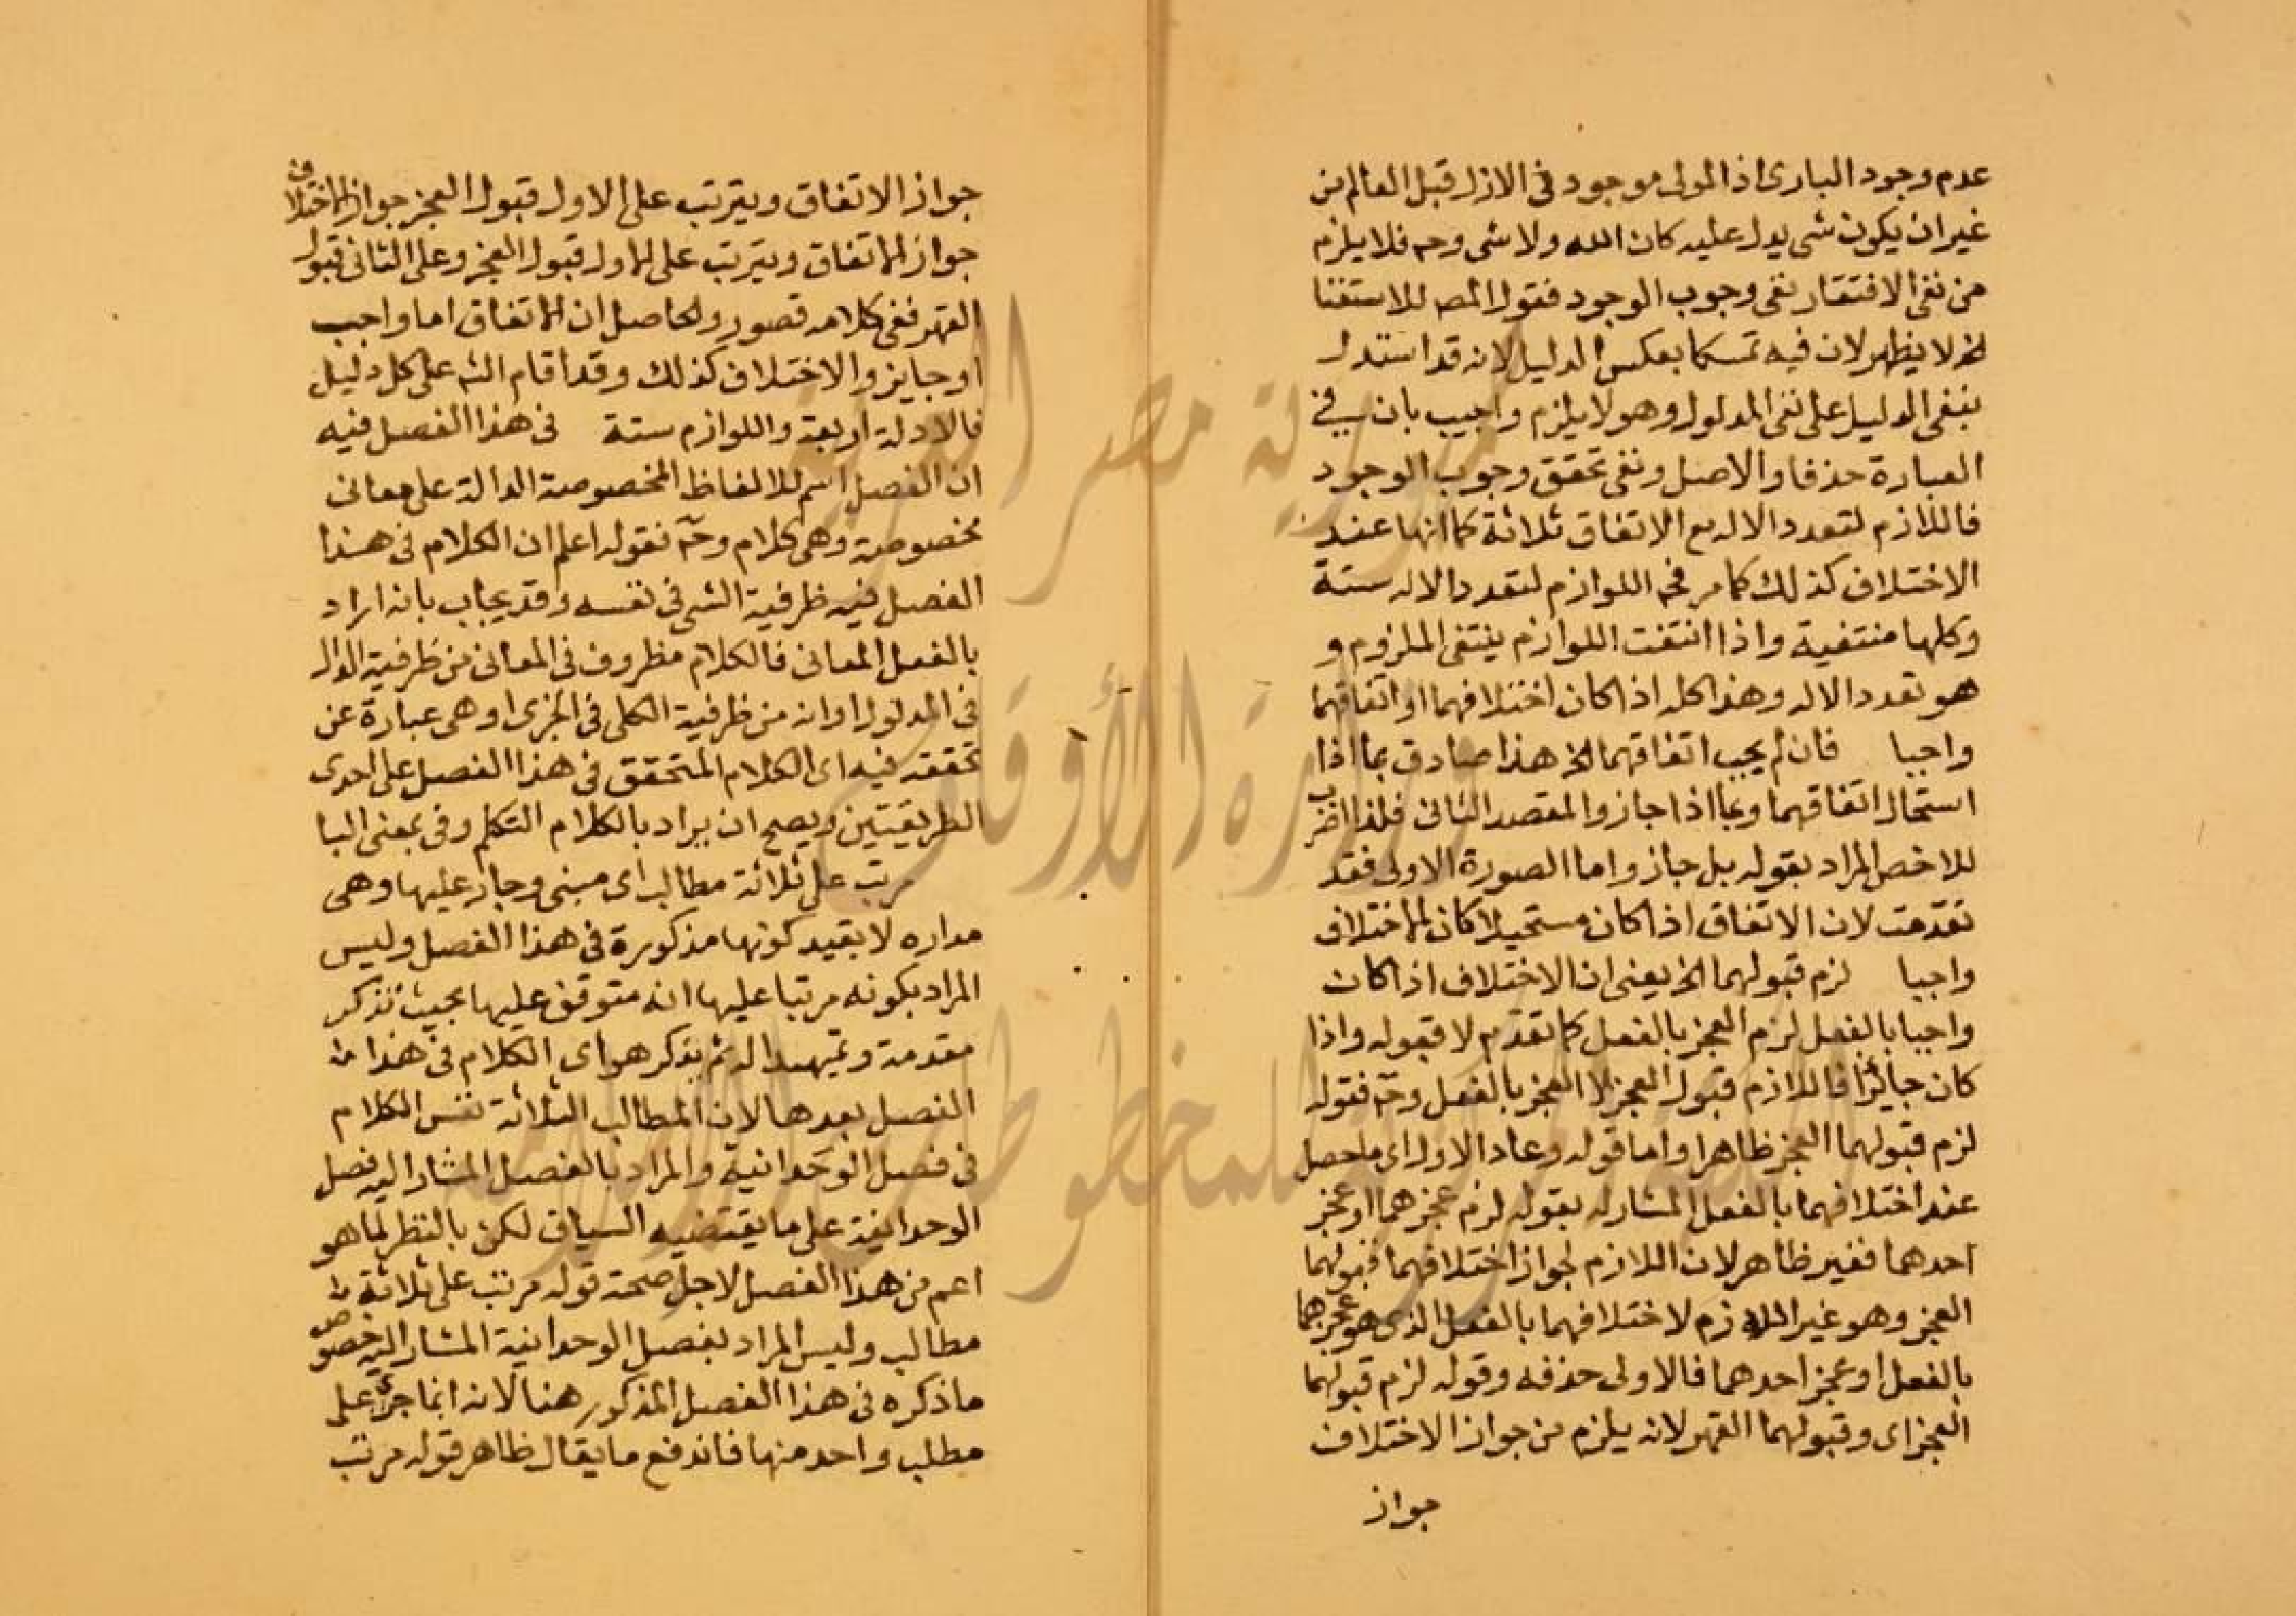 عدم وجود البارى اذ المولى موجود فى الازل قبل العالم من
غير ان يكون شى يدل عليه كان الله ولا شى وح فلا يلزم
من نفى الافتقار نفى وجوب الوجود فقول المص للاستغنا
الخ لا يظهر لان فيه تمسكا بعكس الدليل لانه قد استدل
بنفى الدليل على نفى المدلول وهو لا يلزم واجيب بان فى
العبارة حذفا والاصل ونفى تحقق وجوب الوجود
فاللازم لتعدد الاله مع الاتفاق ثلاثة كما انها عند
الاختلاف كذلك كما مر فح اللوازم لتعدد الاله ستة
وكلها منتفية واذا انتفت اللوازم ينتفى الملزوم و
هو تعدد الاله وهذا كله اذا كان اختلافهما او اتفاقهما
واجبا فان لم يجب اتفاقهما الخ هذا صادق بما اذا
استحال اتفاقهما وبما اذا جاز والمقصد الثانى فلذا اضرب
للاخص المراد بقوله بل جاز واما الصورة الاولى فقد
تقدمت لان الاتفاق اذا كان مستحيلا كان الاختلاف
واجبا لزم قبولهما الخ يعنى ان الاختلاف اذا كان
واجبا بالفعل لزم العجز بالفعل كما تقدم لا قبوله واذا
كان جائزا فاللازم قبول العجز لا العجز بالفعل وح فقوله
لزم قبولهما العجز ظاهر واما قوله وعاد الاول اى ما حصل
عند اختلافهما بالفعل المشار له بقوله لزم عجزهما او عجز
احدهما فغير ظاهر لان اللازم لجواز اختلافهما قبولهما
العجز وهو غير اللازم لاختلافهما بالفعل الذى هو عجزهما
بالفعل او عجز احدهما فالاولى حذفه وقوله لزم قبولهما
العجز اى وقبولهما القهر لانه يلزم من جواز الاختلاف
جواز
جواز الاتفاق ويترتب على الاول قبول العجز جواز الاختلاف
جواز الاتفاق ويترتب على الاول قبول العجز وعلى الثانى قبول
القهر ففى كلامه قصور والحاصل ان الاتفاق اما واجب
او جايز والاختلاف كذلك وقد اقام الشه على كل دليل
فالادلة اربعة واللوازم ستة فى هذا الفصل فيه
ان الفصل اسم للالفاظ المخصوصة الدالة على معانى
مخصوصة وهى كلام وح نقوله اعلم ان الكلام فى هذا
الفصل فيه ظرفية الشى فى نفسه وقد يجاب بانه اراد
بالفصل المعانى فالكلام مظروف فى المعانى من ظرفية الدال
فى المدلول او انه من ظرفية الكلى فى الجزى او هى عبارة عن
تحققه فيه اى الكلام المتحقق فى هذا الفصل على احدى
الطريقتين ويصح ان يراد بالكلام التكلم وفى بمعنى البا
مرتب على ثلاثة مطالب اى مبنى وجار عليها وهى
مداره لا بقيد كونها مذكورة فى هذا الفصل وليس
المراد بكونه مرتبا عليها انه متوقف عليها بحيث تذكر
مقدمة وتمهيدا له ثم يذكر هو اى الكلام فى هذا
الفصل بعدها لان المطالب الثلاثة نفس الكلام
فى فصل الوحدانية والمراد بالفصل المشار اليه فصل
الوحدانية على ما يقتضيه السياق لكن بالنظر لما هو
اعم من هذا الفصل لاجل صحة قوله مرتب على ثلاثة
مطالب وليس المراد بفصل الوحدانية المشار اليه خصوص
ما ذكره فى هذا الفصل المذكور هنا لانه انما جرى على
مطلب واحد منها فاندفع ما يقال ظاهر قوله مرتب